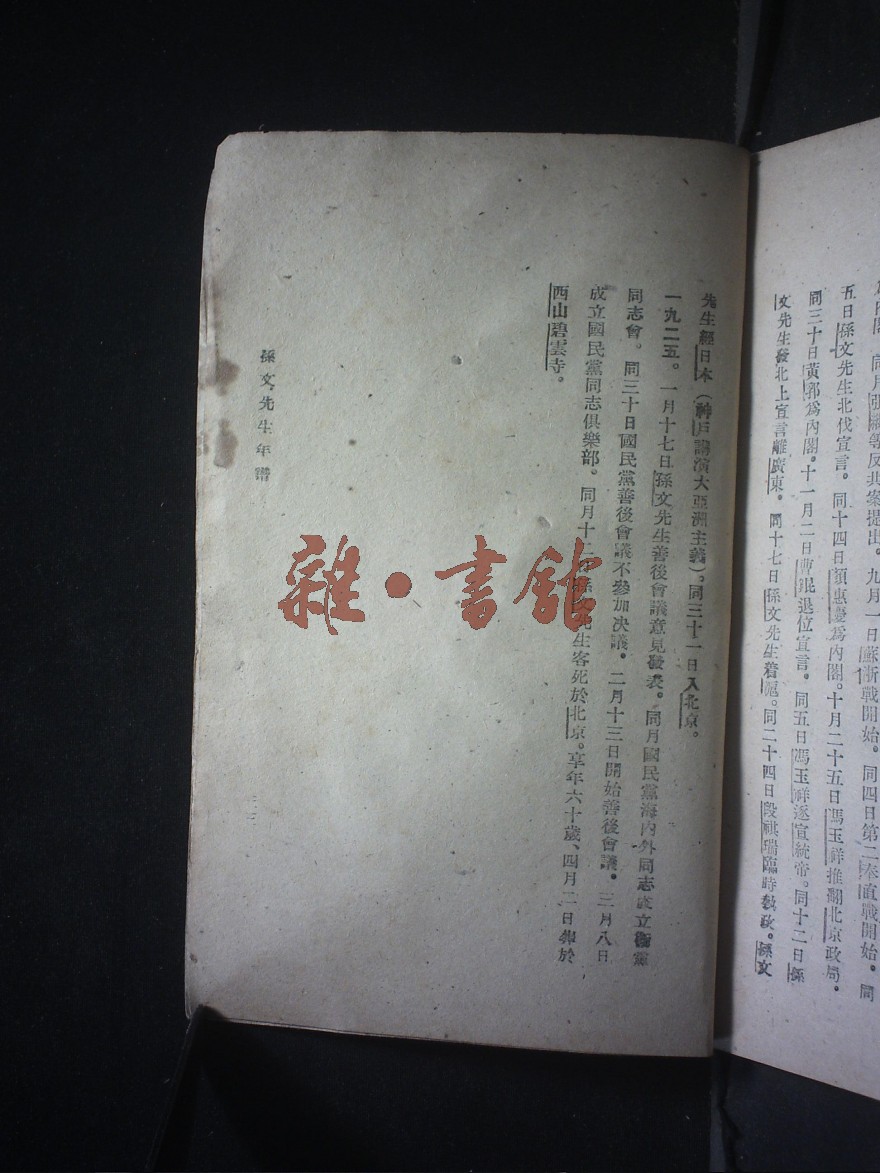 內閣。同月張繼等反共案提出。九月一日蘇浙戰開始。同四日第二奉直戰開始。同
五日孫文先生北伐宣言。同十四日顏惠慶爲內閣。十月二十五日馮玉祥推翻北京政局。
同三十日黃郛爲內閣。十一月二日曹錕退位宣言。同五日馮玉祥逐宣統帝。同十二日孫
文先生發北上宣言離廣東。同十七日孫文先生着滬。同二十四日段祺瑞臨時執政。孫文
先生經日本(神戶講演大亞洲主義)。同三十一日入北京。
一九二五。一月十七日孫文先生善後會議意見發表。同月國民黨海內外同志成立衞黨
同志會。同三十日國民黨善後會議不參加決議。二月十三日開始善後會議。三月八日
成立國民黨同志俱樂部。同月十二日孫文先生客死於北京。享年六十歲、四月二日葬於
西山碧雲寺。
孫文先生年譜
雜·書館